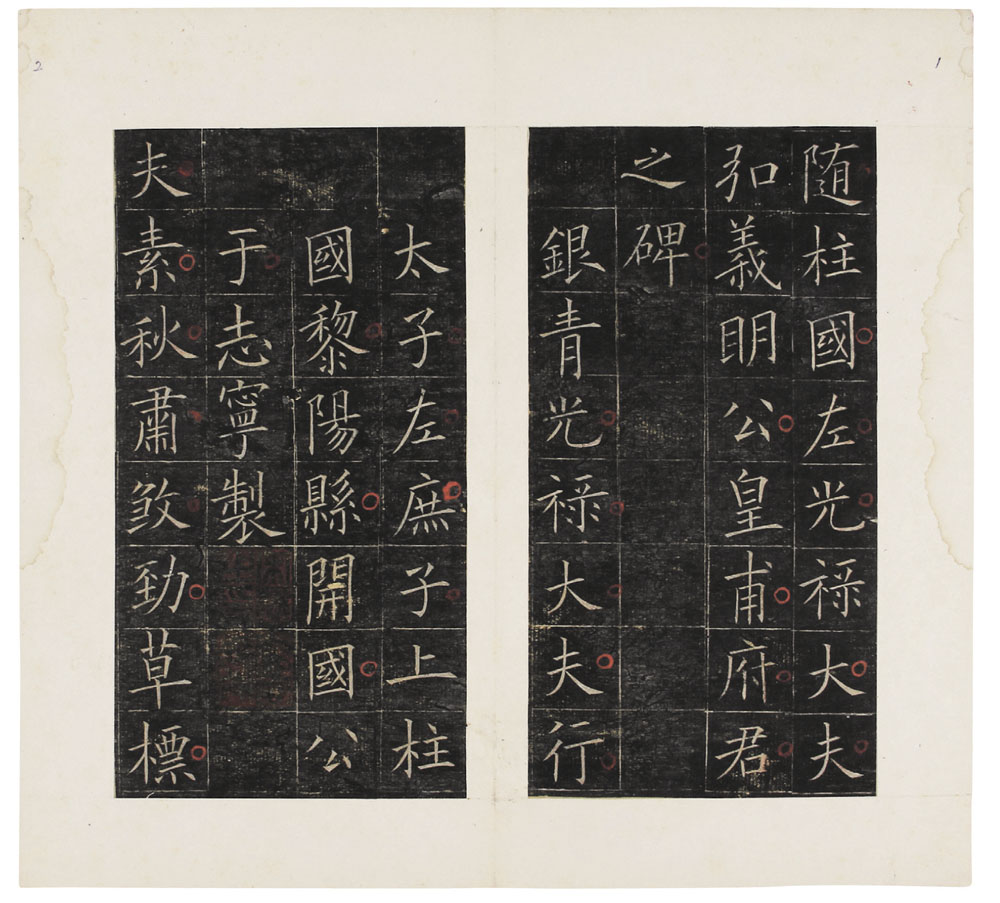 1
随柱國左光禄大夫
弘義明公皇甫府君
之碑
銀青光禄大夫行
2
太子左庶子上柱
國黎陽縣開國公
于志寧製
夫素秋肅煞勁草標